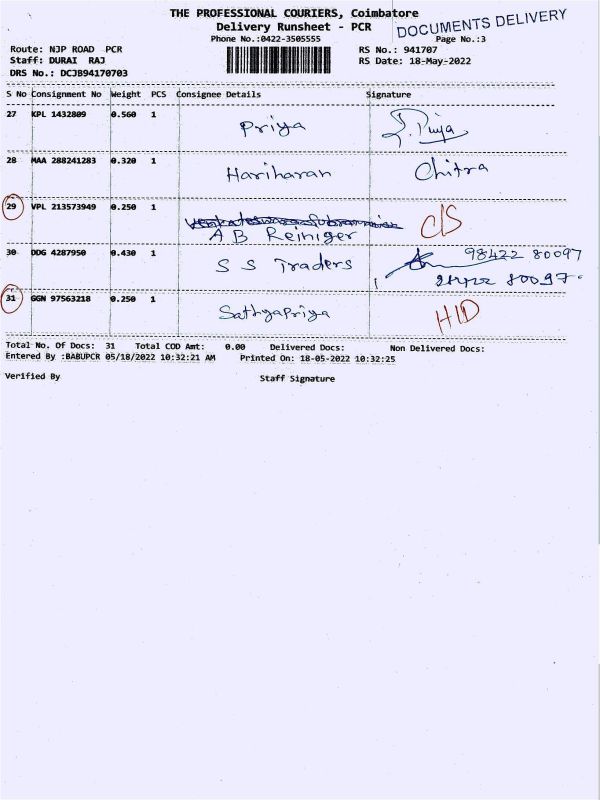 THE PROFESSIONAL COURIERS, Coimbatore
DOCUMENTS DELIVERY
Delivery Runsheet - PCR
Phone No.:0422-3505555
Page No.:3
Route: NJP ROAD PCR
RS No.: 941707
Staff: DURAI RAJ
RS Date: 18-May-2022
DRS No.: DCJB94170703
S No Consignment No Weight PCS Consignee Details Signature
27 KPL 1432809 0.560 1 Priya Priya
28 MAA 288241283 0.320 1 Hariharan Chitra
29 VPL 213573949 0.250 1 C/S
A B Reiniger
30 DDG 4287950 0.430 1 S S Traders 98422 80097
98422 80097.
31 GGN 97563218 0.250 1 Sathyapriya H/D
Total No. Of Docs: 31 Total COD Amt: 0.00 Delivered Docs: Non Delivered Docs:
Entered By :BABUPCR 05/18/2022 10:32:21 AM Printed On: 18-05-2022 10:32:25
Verified By Staff Signature